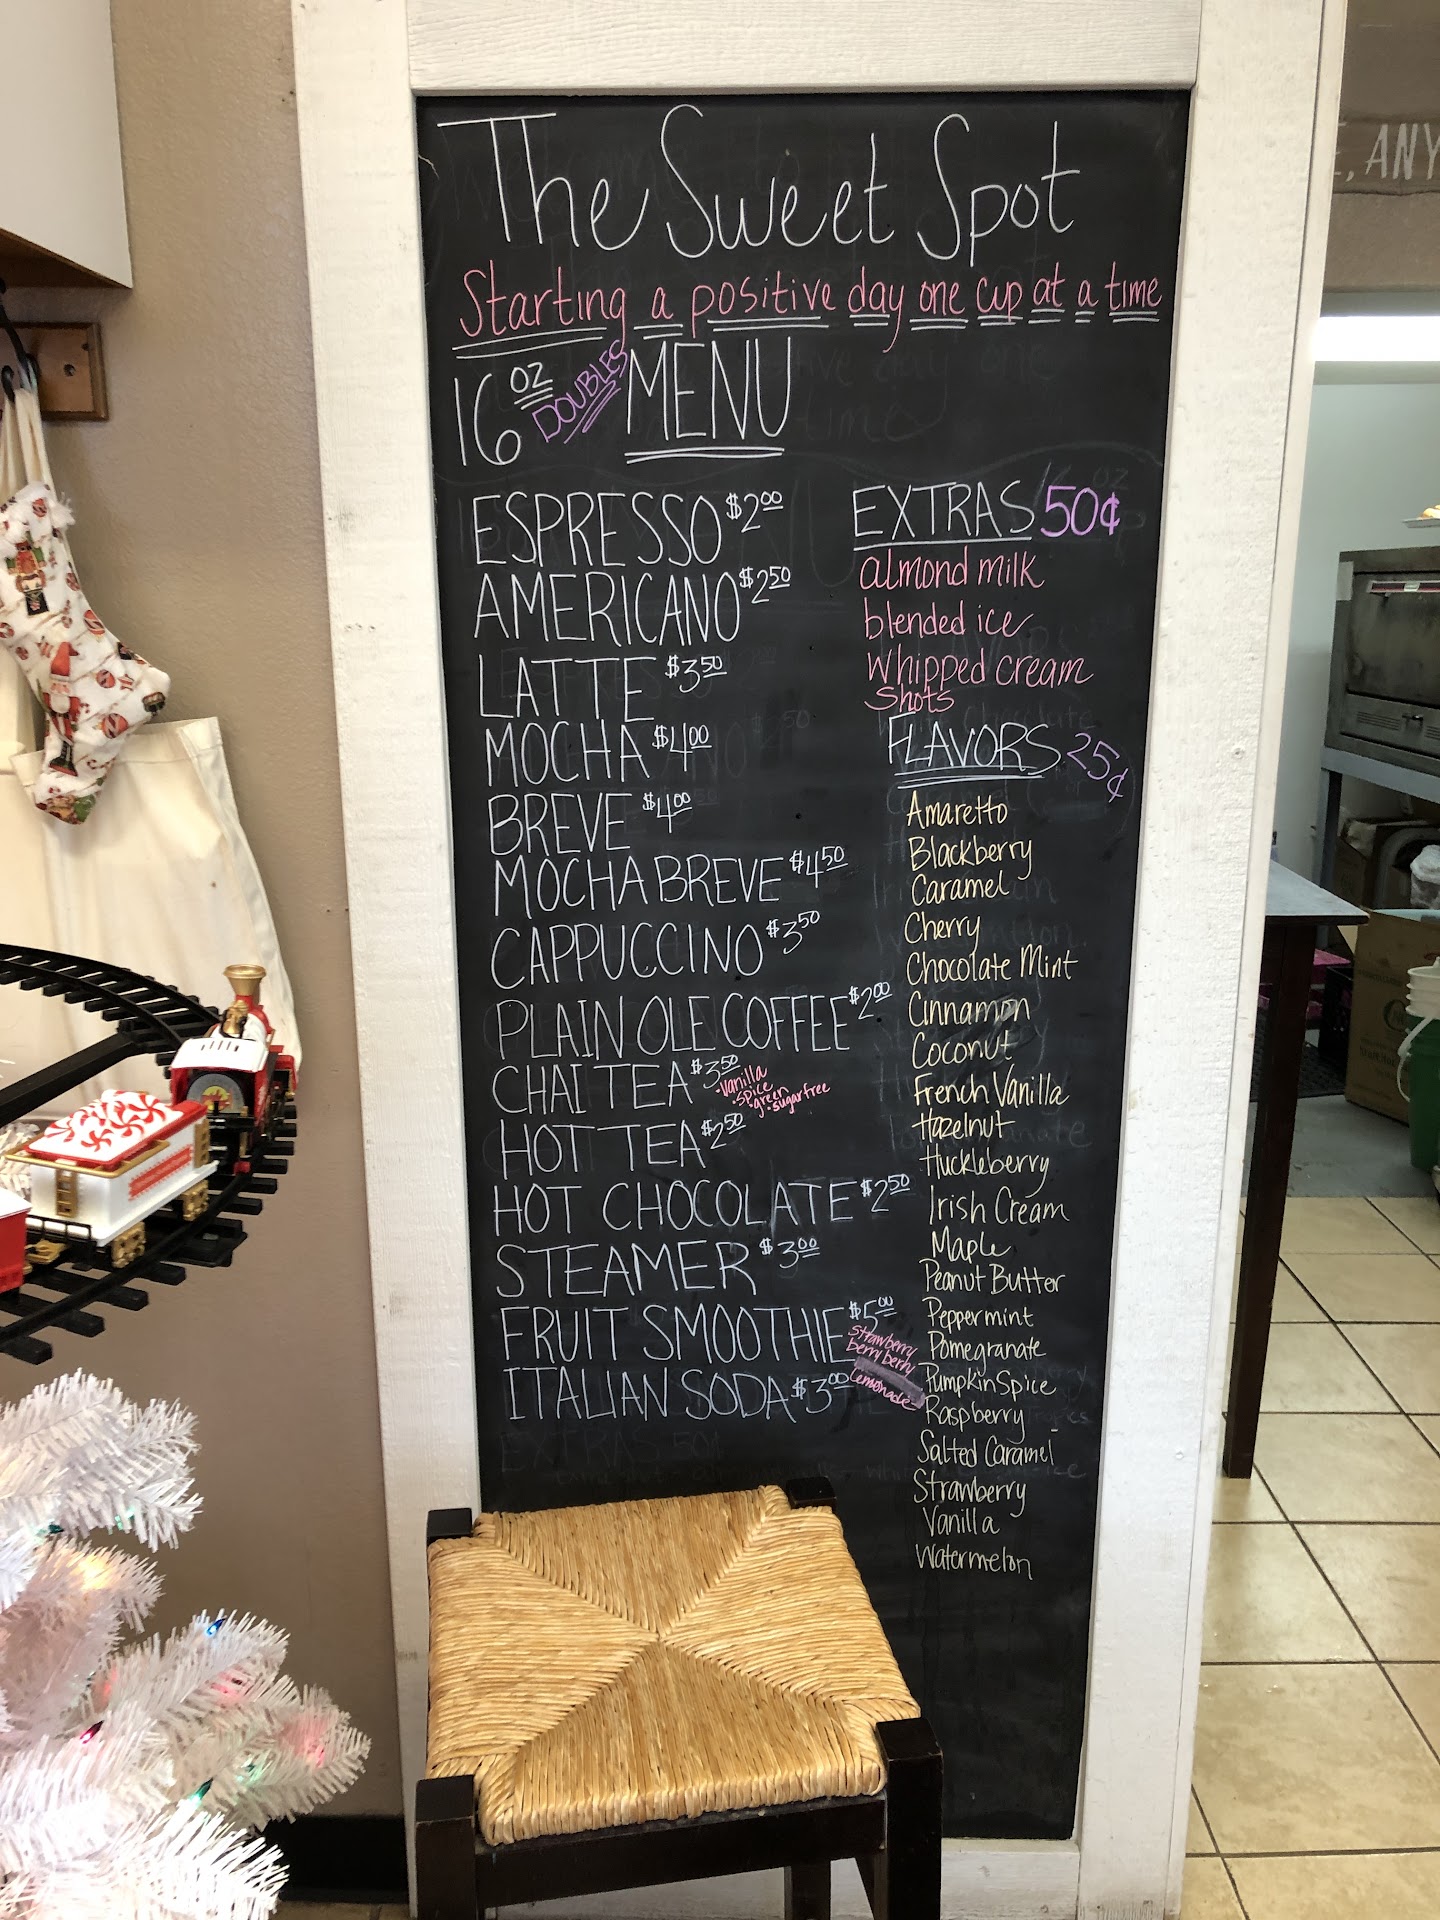 The Sweet Spot
Starting a positive day one cup at a time
16 oz DOUBLES MENU
ESPRESSO $2.00
AMERICANO $2.50
LATTE $3.50
MOCHA $4.00
BREVE $4.00
MOCHA BREVE $4.50
CAPPUCCINO $3.50
PLAIN OLE COFFEE $2.00
CHAI TEA $3.50
• Vanilla
• Spice
• green
• sugar free
HOT TEA $2.50
HOT CHOCOLATE $2.50
STEAMER $3.00
FRUIT SMOOTHIE $5.00
Strawberry
berry berry
Lemonade
ITALIAN SODA $3.00
EXTRAS 50¢
almond milk
blended ice
whipped cream
Shots
FLAVORS 25¢
Amaretto
Blackberry
Caramel
Cherry
Chocolate Mint
Cinnamon
Coconut
French Vanilla
Hazelnut
Huckleberry
Irish Cream
Maple
Peanut Butter
Peppermint
Pomegranate
Pumpkin Spice
Raspberry
Salted Caramel
Strawberry
Vanilla
Watermelon
, ANY